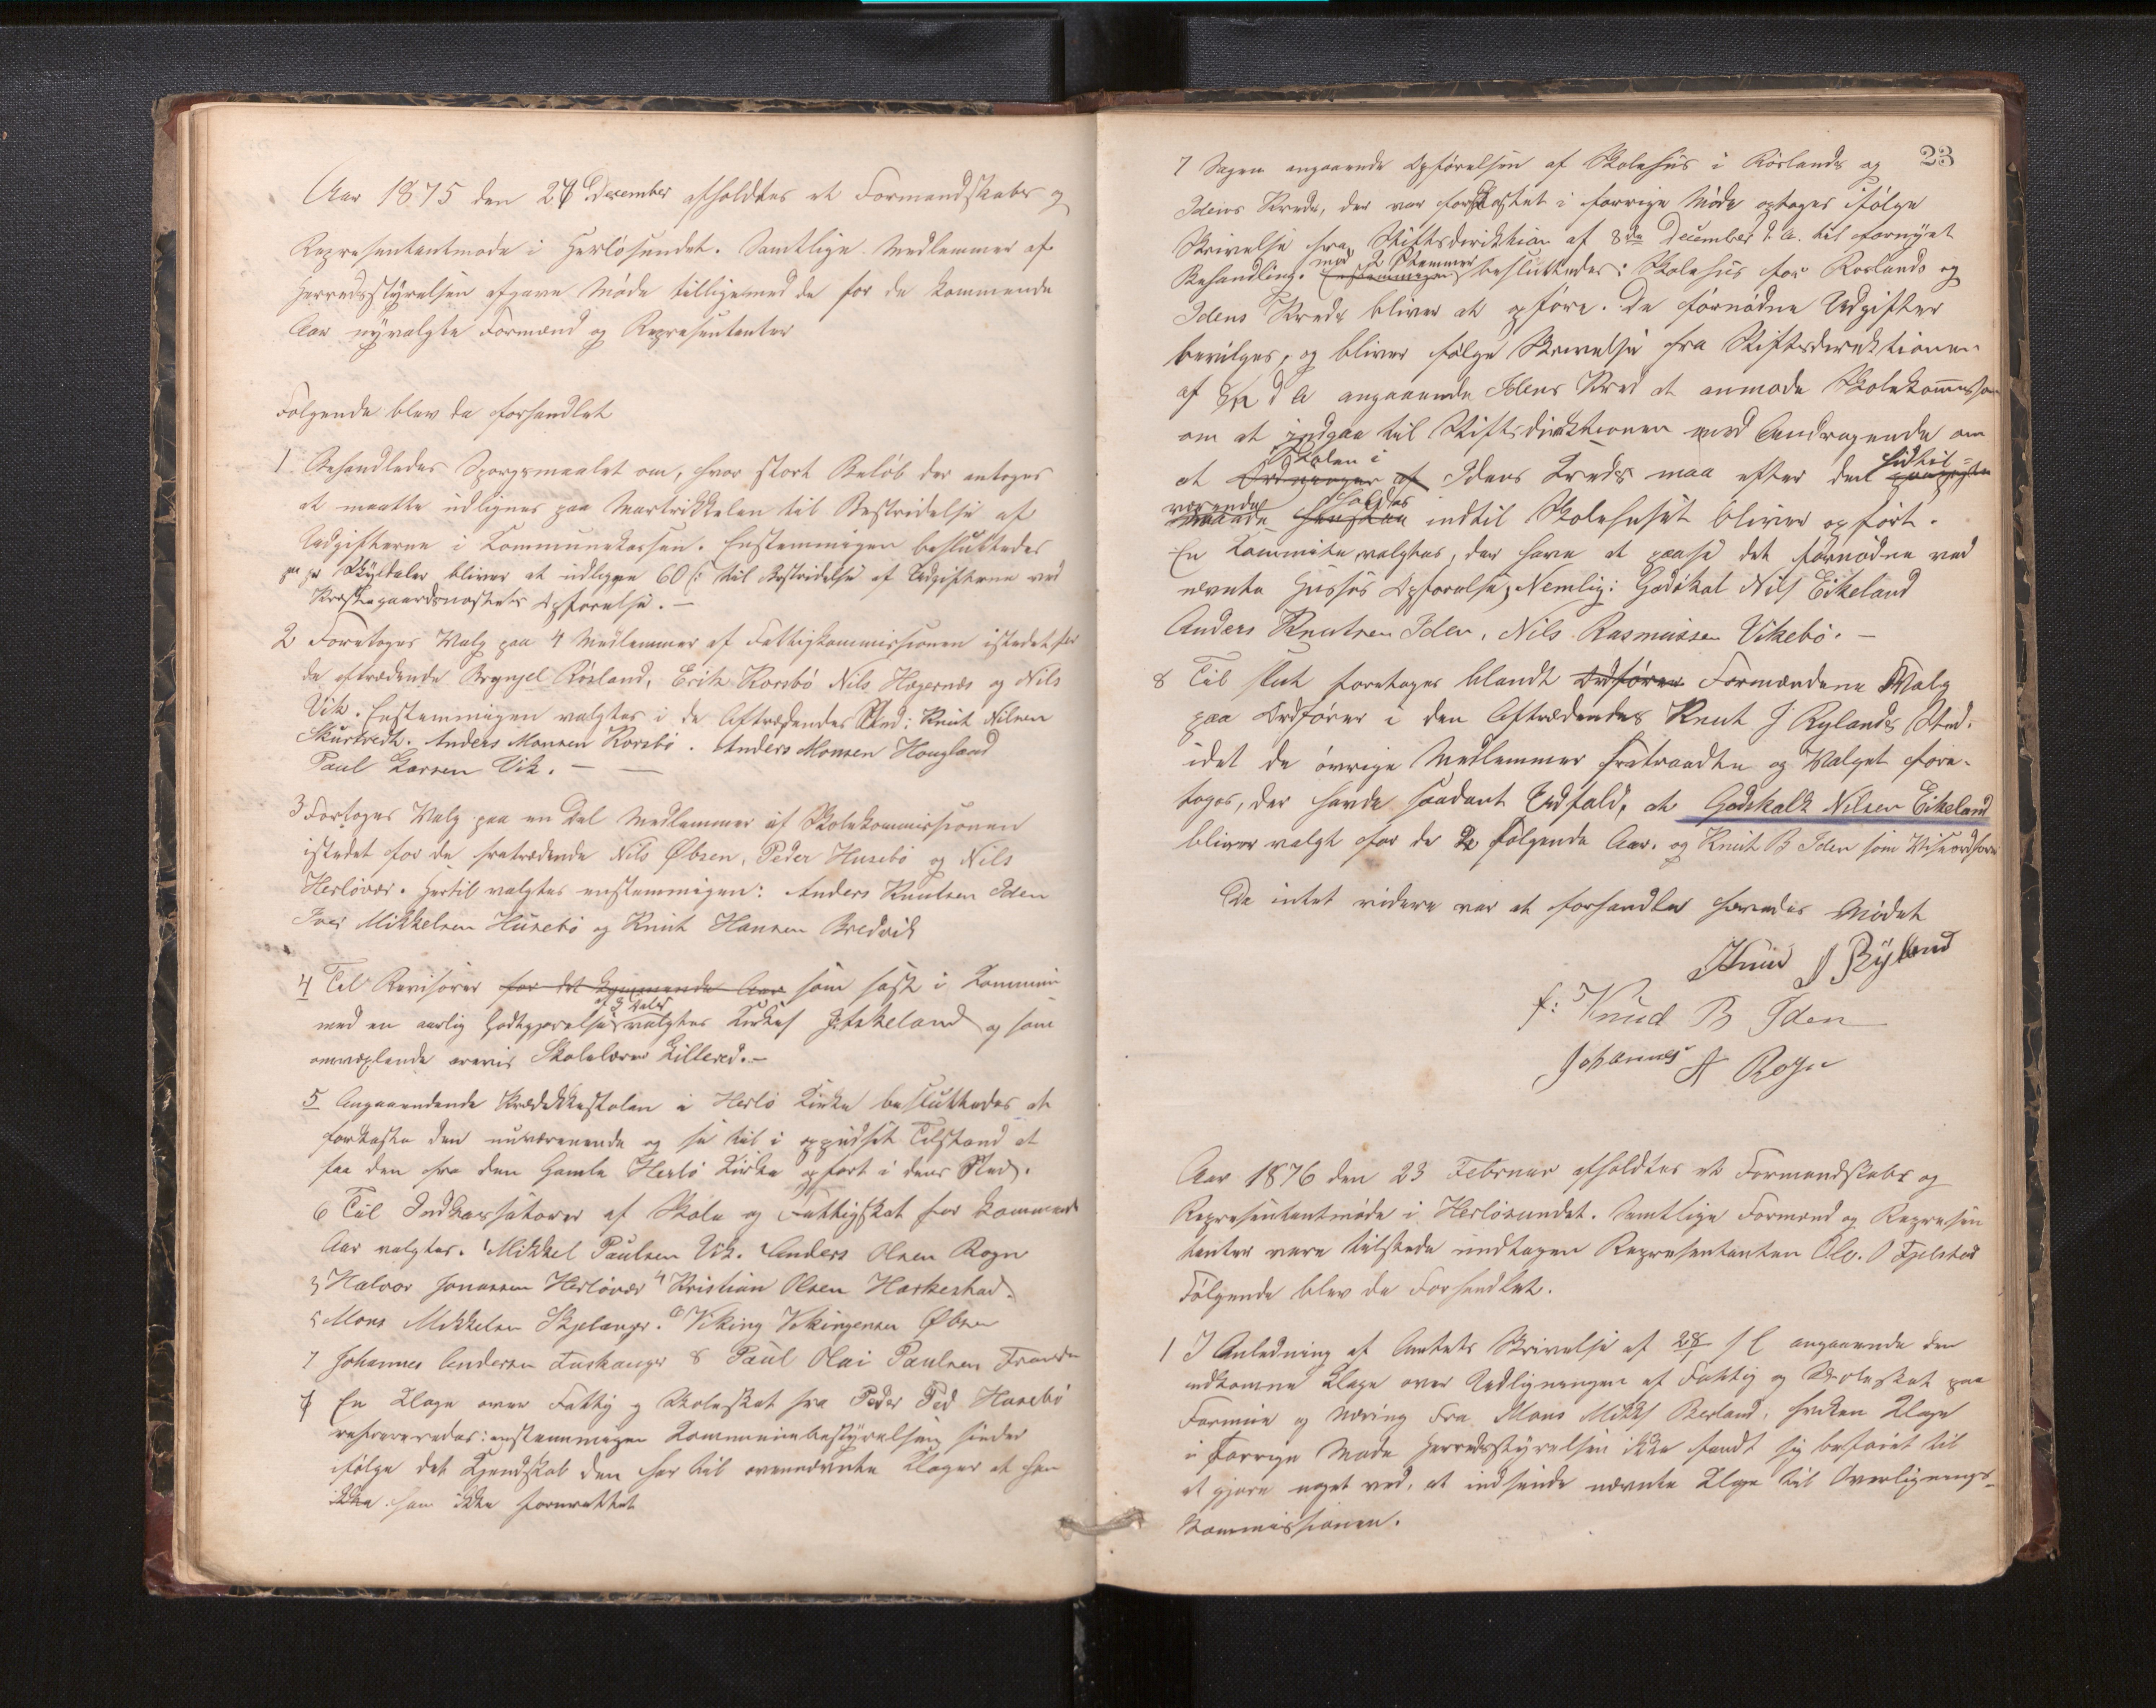 Aar 1875 den 27 December afholdtes et Formandskabs og
Representantmøde i Herløsundet. Samtlige Medlemmer af
Herredsstyrelsen afgave Møde tilligemed de for de kommende
Aar nyvalgte Formænd og Representanter
Følgende blev da forhandlet
1 Behandledes Spørgsmaalet om, hvor stort Beløb der antoges
at maatte udlignes paa Martrikkelen til Bestridelse af
Udgifterne i Kommunekassen. Enstemmigen besluttedes
pr Skyldaler bliver at udligne 60 ß til Bestridelse af Udgifterne ved
Opførelse. —
2 Foretoges Valg paa 4 Medlemmer af Fattigkommissionen istedetfor
de aftrædende Bryngel Røsland, Erik Korsbø Nils Hagernæs og Nils
Vik. Enstemmigen valgtes i de Aftrædendes Sted: Knut Nilsen
Skurtvedt. Anders Monsen Korsbø. Anders Monsen Hougland
Paul Larsen Vik. —
3 Fortoges Valg paa en Del Medlemmer af Skolekommissionen
istedet for de fratrædende Nils Øbsen, Peder Husebø og Nils
Herløvær. Hertil valgtes enstemmigen: Anders Knutsen Iden
Iver Mikkelsen Husebø og Knut Hansen Bredvik
4 Til Revisorer for det kommende Aar som fast i Kommunen
af 3 Daler
med en aarlig Godtgjørelse valgtes Kirkes Eikeland og som
omvexlende Skolelærer Lillered. —
5 Angaaendende Prædikestolen i Herlø Kirke besluttedes at
forkaste den nuværenende og se til i oppudset Tilstand at
faa den fra den Gamle Herlø Kirke opført i dens Sted.
6 Til Indkassatorer af Skole og Fattigskat for kommende
Aar valgtes. 1 Mikkel Paulsen Vik. 2 Anders Olsen Rogn
3 Halvor Jonassen Herløvær 4 Kristian Olsen Harkestad.
5 Mons Mikkelsen Skjelanger. 6 Viking Vikingensen Øbsen
7 Johannes Andersen Tushauger 8 Paul Olai Paulsen
7 En Klage over Fattig og Skoleskat fra Peder Ped Husebø
refereredes: enstemmigen Kommunebestyrelsen finder
ifølge det Kjendskab den har til ovennævnte Klager at han
ikke han ikke forurettet
23
7 Sagen angaaende Opførelsen af Skolehus i Røslands og
Idens Kreds, der var forkastet i forrige Møde optoges ifølge
Skrivelse fra Stiftsdirektion af 8de December d. A. til fornyet
mod 2 Stemmer
Behandling. Enstemmigen besluttedes: Skolehus for Roslands og
Idens Kreds bliver at opføre. De fornødne Udgifter
bevilges, og bliver følge Skrivelse fra Stiftsdirektionen
af 8/12 d A angaaende Idens Kreds at anmode Skolekommission
om at indgaa til Stiftsdirektionen med Andragende om
Skolen i
hidtil-
at Ordningen af Idens Kreds maa efter den
værende
holdes
Maade indtil Skolehuset bliver opført.
En Kommite valgtes, der have at paase det fornødne ved
nævnte Huses Opførelse, Nemlig: Godskal Nils Eikeland
Anders Knutsen Iden, Nils Rasmussen Vikebø. —
8 Til slut foretoges blandt Ordfører Formændene Valg
paa Ordfører i den Aftrædendes Knut J Rylands Sted.
idet de øvrige Medlemmer fratraadte og Valget fore-
toges, der havde saadant Udfald, at Godskalk Nilsen Eikeland
bliver valgt for de 2 følgende Aar. og Knut B Iden som Viseordfører
Da intet videre var at forhandle hævedes Mødet
Knud J Ryland
f: Knud B Iden
Johannes A Rogn
Aar 1876 den 23 Februar afholdtes et Formandskabs og
Representantmøde i Herløsundet. Samtlige Formænd og Represen
tanter vare tilstede undtagen Representanten Ole. O Fjelstad
Følgende blev da Forhandlet.
1 I Anledning af Amtets Skrivelse af 28/1 angaaende den
indkomne Klage over Udligningen af Fattig og Skoleskat paa
Formue og Næring Fra Mons Mikks Berland, hvilken Klage
i Forrige Møde Herredsstyrelsen ikke fandt sig beføiet til
at gjøre noget ved, at indsende nævnte Klage til Overlignings-
Kommissionen.